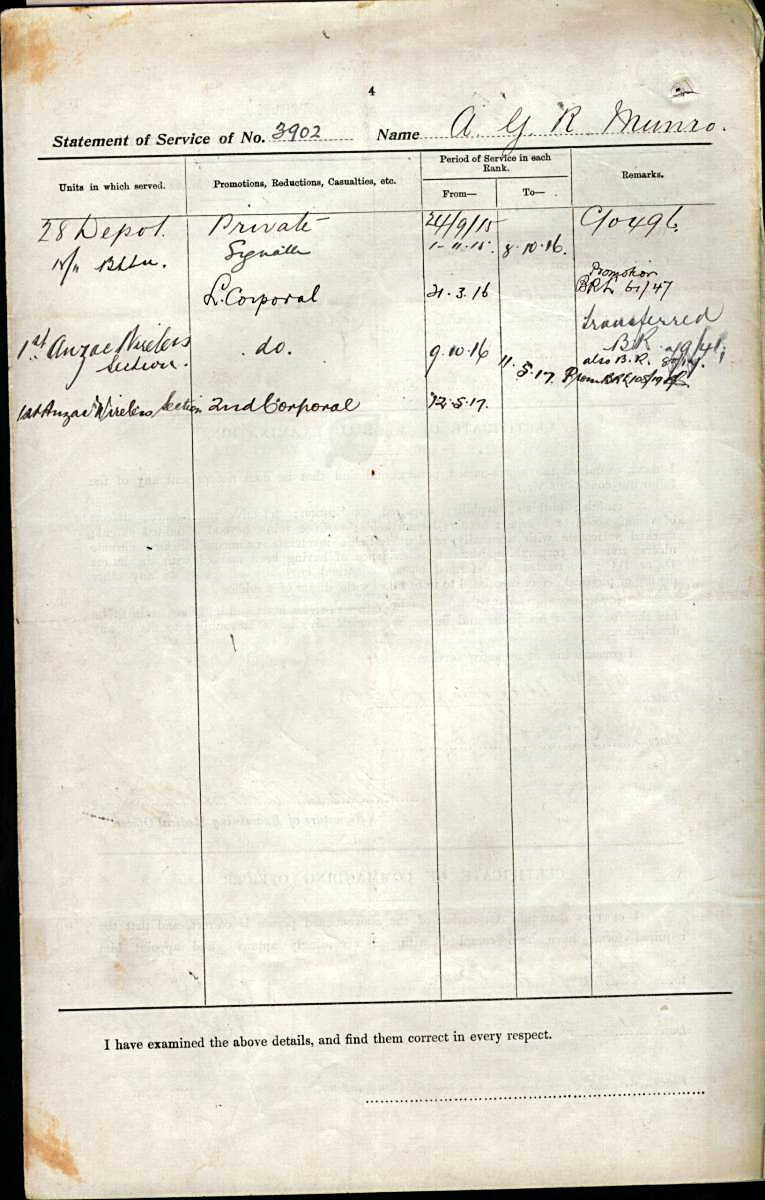 4
Statement of Service of No. 3902 Name A G R Munro.
Units in which served.
Promotions, Reductions, Casualties, etc.
Period of Service in each Rank.
From—
To—
Remarks.
28 Depot. Private 24/9/15
1-11-15. 8.10.16.
Promotion
L. Corporal 21.3.16 61/47
transferred
1st Anzac Wireless Section. do. 9.10.16 11.5.17
also B.R.
1st Anzac Wireless Section 2nd Corporal 12.5.17.
I have examined the above details, and find them correct in every respect.